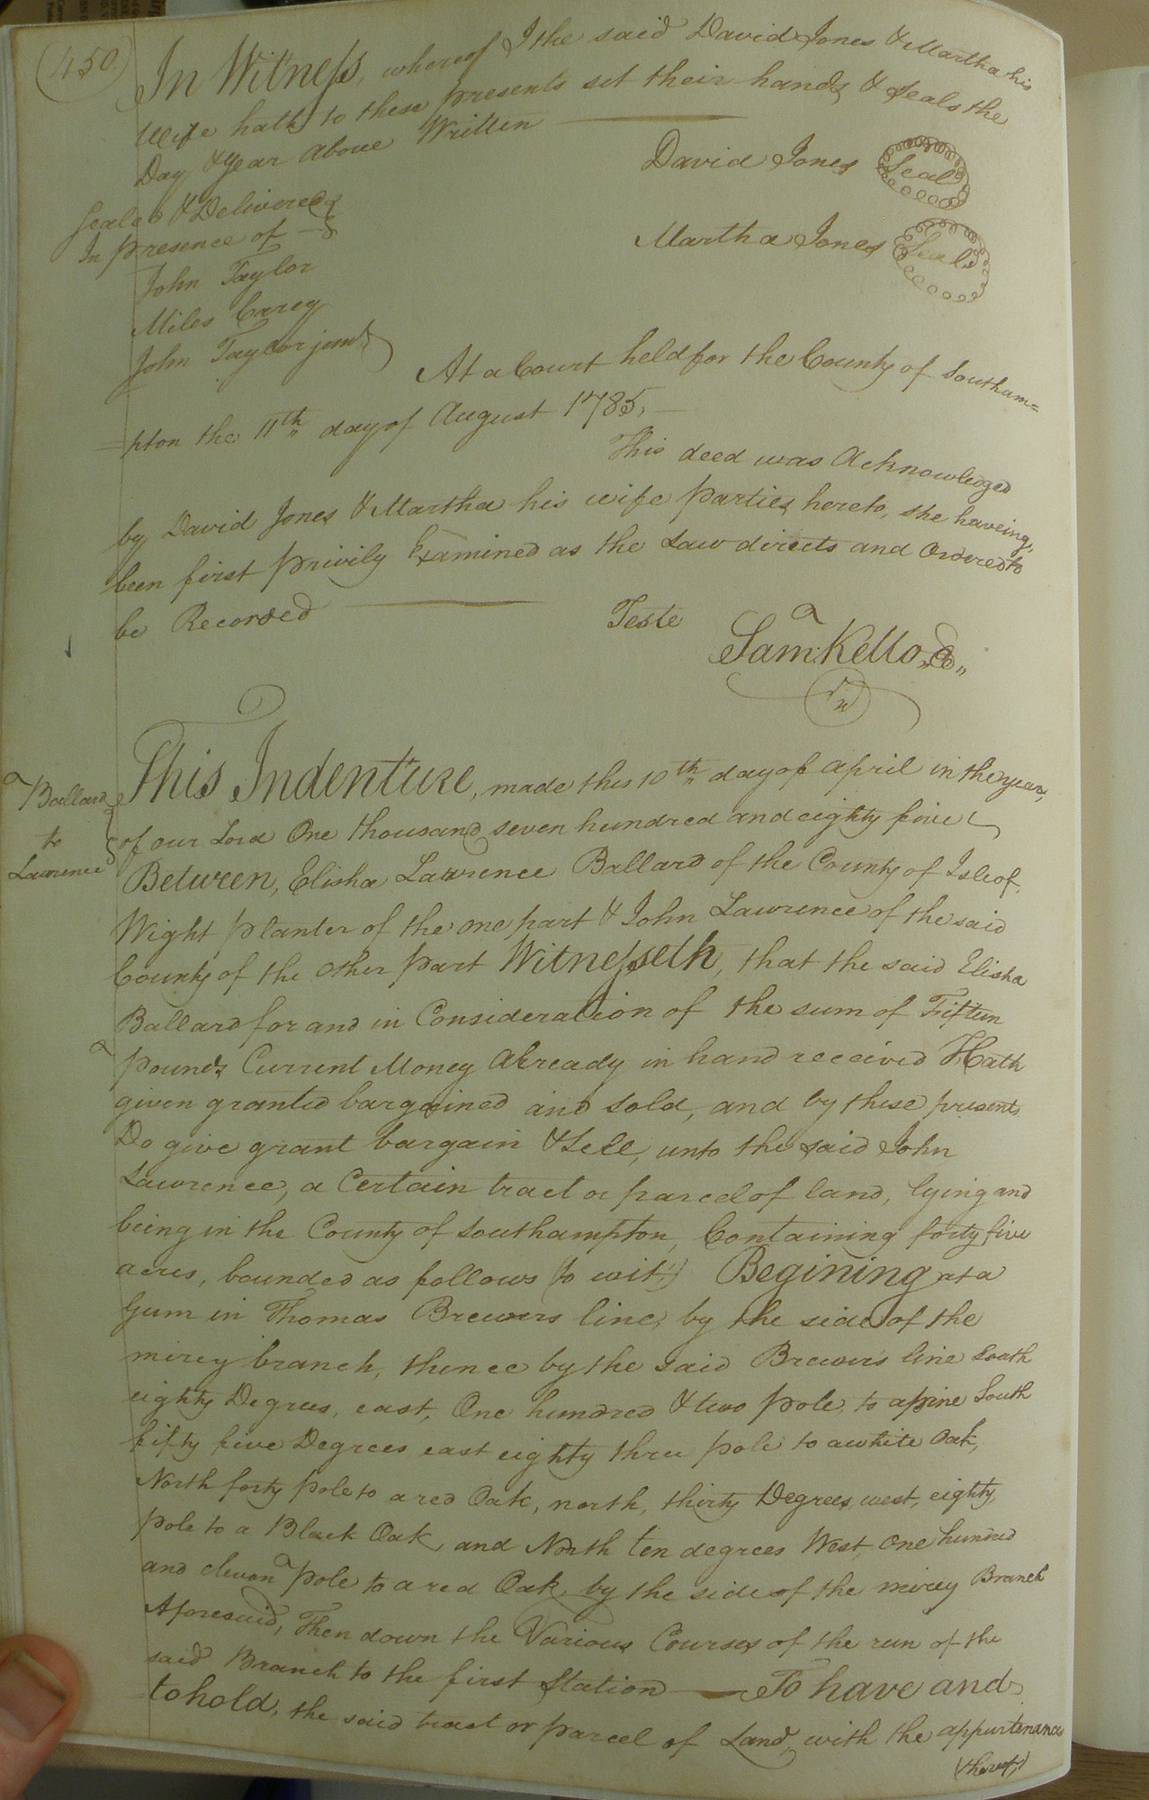 (450)
In Witness, whereof I the said David Jones & Martha his
Wife hath to these presents set their hands & Seals the
Day & Year Above Written
David Jones Seal
Sealed & Delivered
In presence of
Martha Jones Seal
John Taylor
Miles Carey
John Taylor junr
At a Court held for the County of Southam=
=pton the 11th day of August 1785,
This deed was Acknowledged
by David Jones & Martha his wife parties hereto, she haveing,
been first privily Examined as the Law directs and Ordered to
be Recorded
Teste
Sam Kello
Ballard
to
Lawrence
This Indenture, made this 10th day of april in the year,
of our Lord One thousand seven hundred and eighty five
Between, Elisha Lawrence Ballard of the County of Isle of
Wight planter of the one part & John Lawrence of the said
County of the Other part Witnesseth, that the said Elisha
Ballard for and in Consideration of the sum of Fifteen
pounds Current Money Already in hand received Hath
given granted bargained and sold, and by these presents
Do give grant bargain & Sell, unto the said John
Lawrence, a Certain tract or parcel of land, lying and
being in the County of Southampton, Containing forty five
acres, bounded as follows (to wit) Begining at a
Gum in Thomas Brewers line, by the side of the
mirey branch, thence by the said Brewers line South
eighty Degrees, east, One hundred & two pole to a pine South
fifty five Degrees east eighty three pole to a white Oak,
North forty pole to a red Oak, north, thirty Degrees, west, eighty,
pole to a Black Oak, and North ten degrees West, One hundred
and eleven pole to a red Oak by the side of the mirey Branch
Aforesaid, Then down the Various Courses of the run of the
said Branch to the first Station To have and
to hold, the said tract or parcel of Land, with the appurtenances
(thereof,)